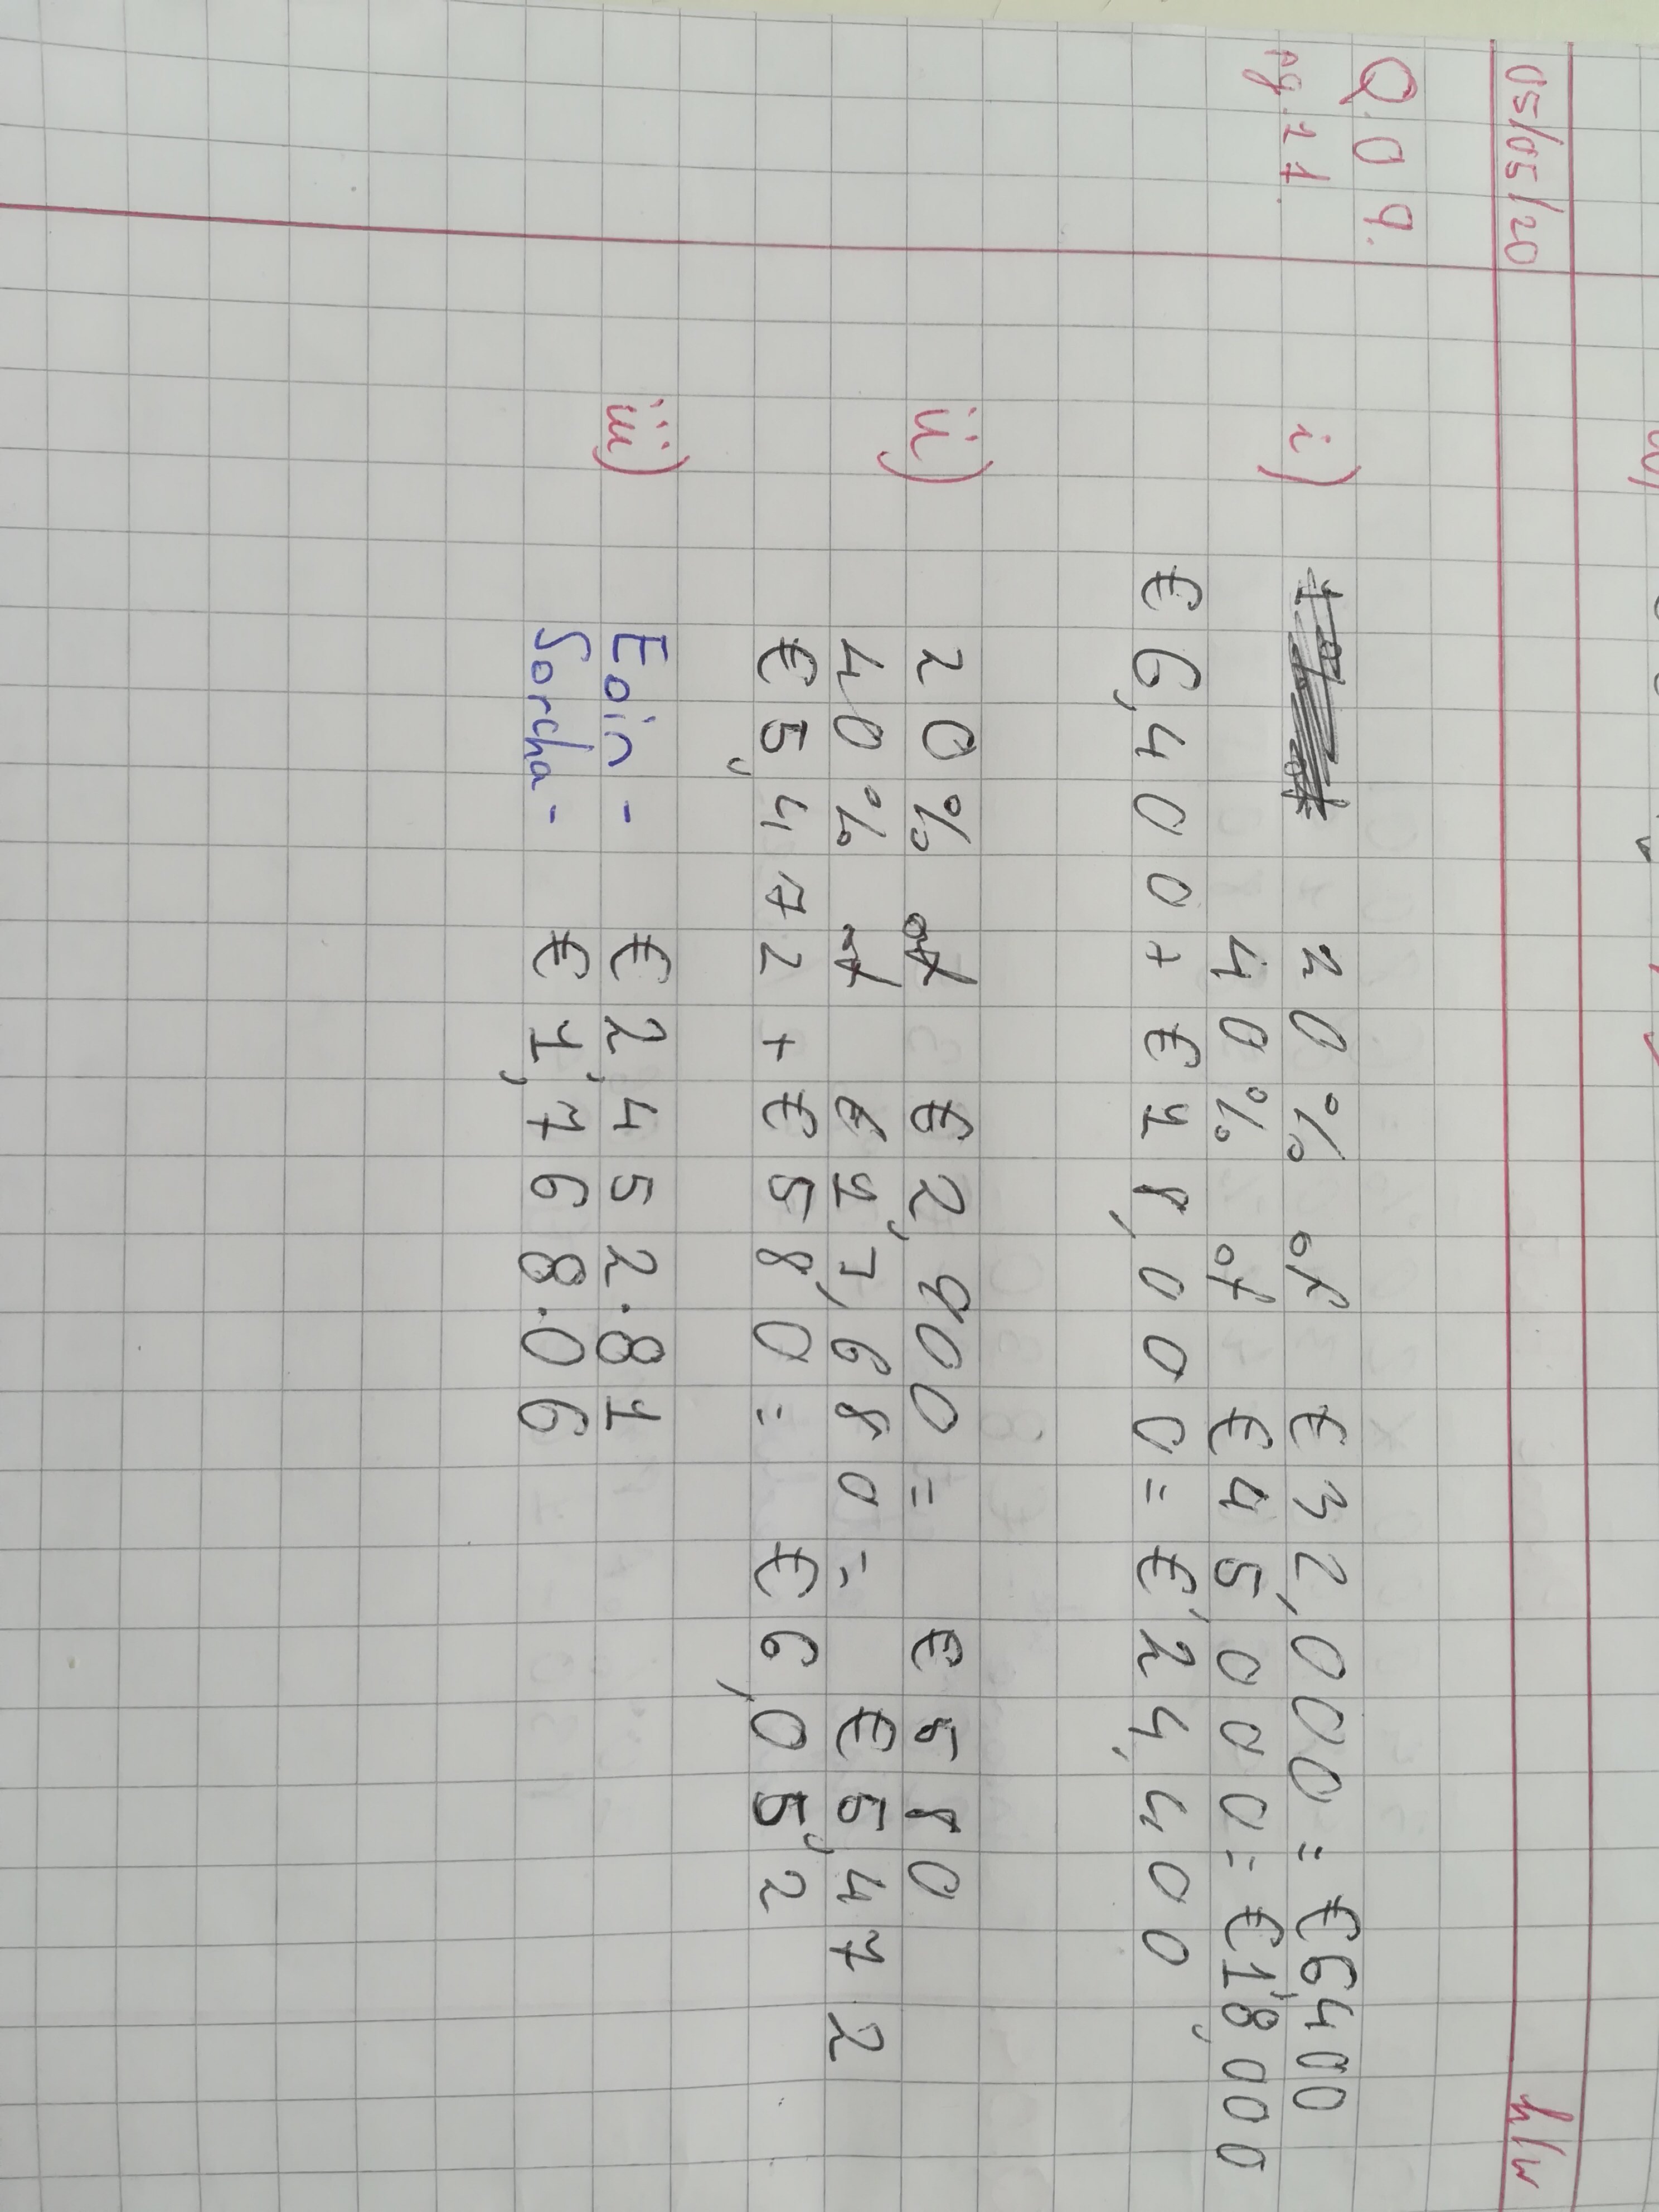 05/05/20 h/w
Q.09.
pg.21.
i) 20% of €32,000 = €6400
40% of €45000 = €18,000
€6,400 + €18,000 = €24,400
ii) 20% of €2,900 = €580
40% of €1,7,680 = €5,472
€5,472 + €580 = €6,052
iii) Eoin - €2,452.81
Sorcha - €1,768.06